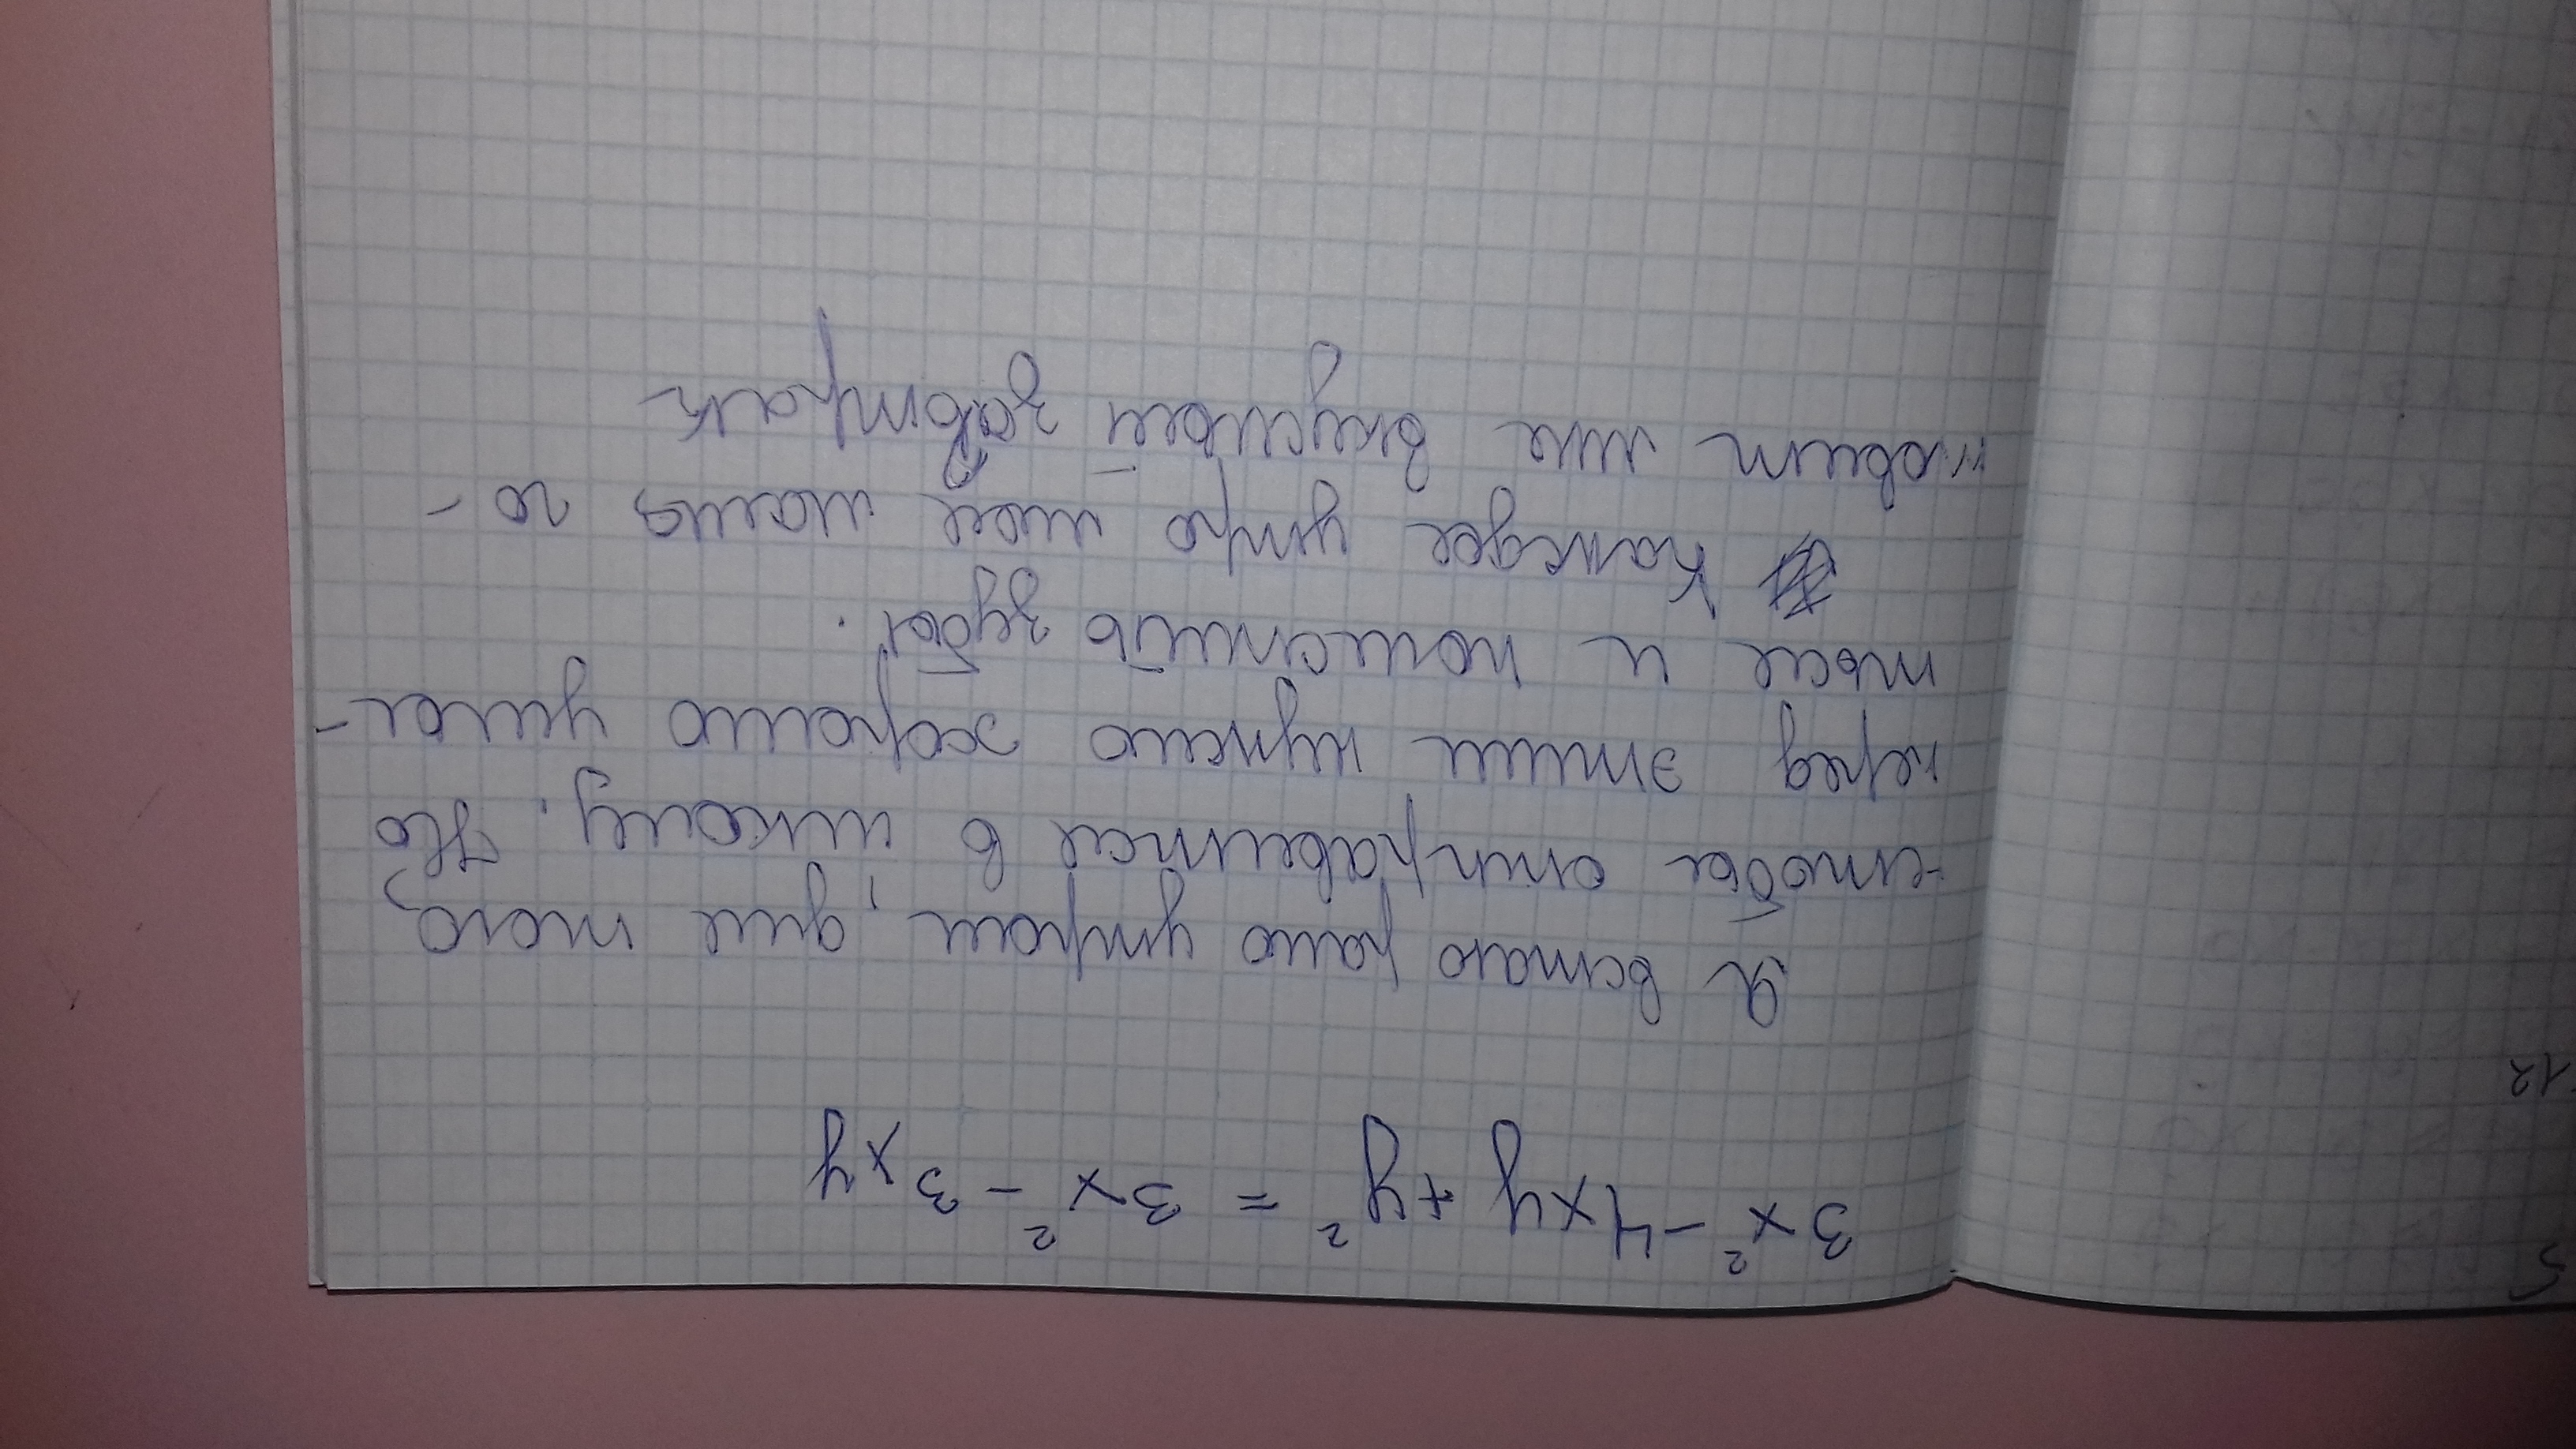 3x² - 4xy + y² = 3x² - 3xy
Я встаю рано утром, для того,
чтобы отправиться в школу. Но
перед этим нужно хорошо умы-
ться и почистить зубы.
Каждое утро моя мама го-
товит мне вкусный завтрак
12
5